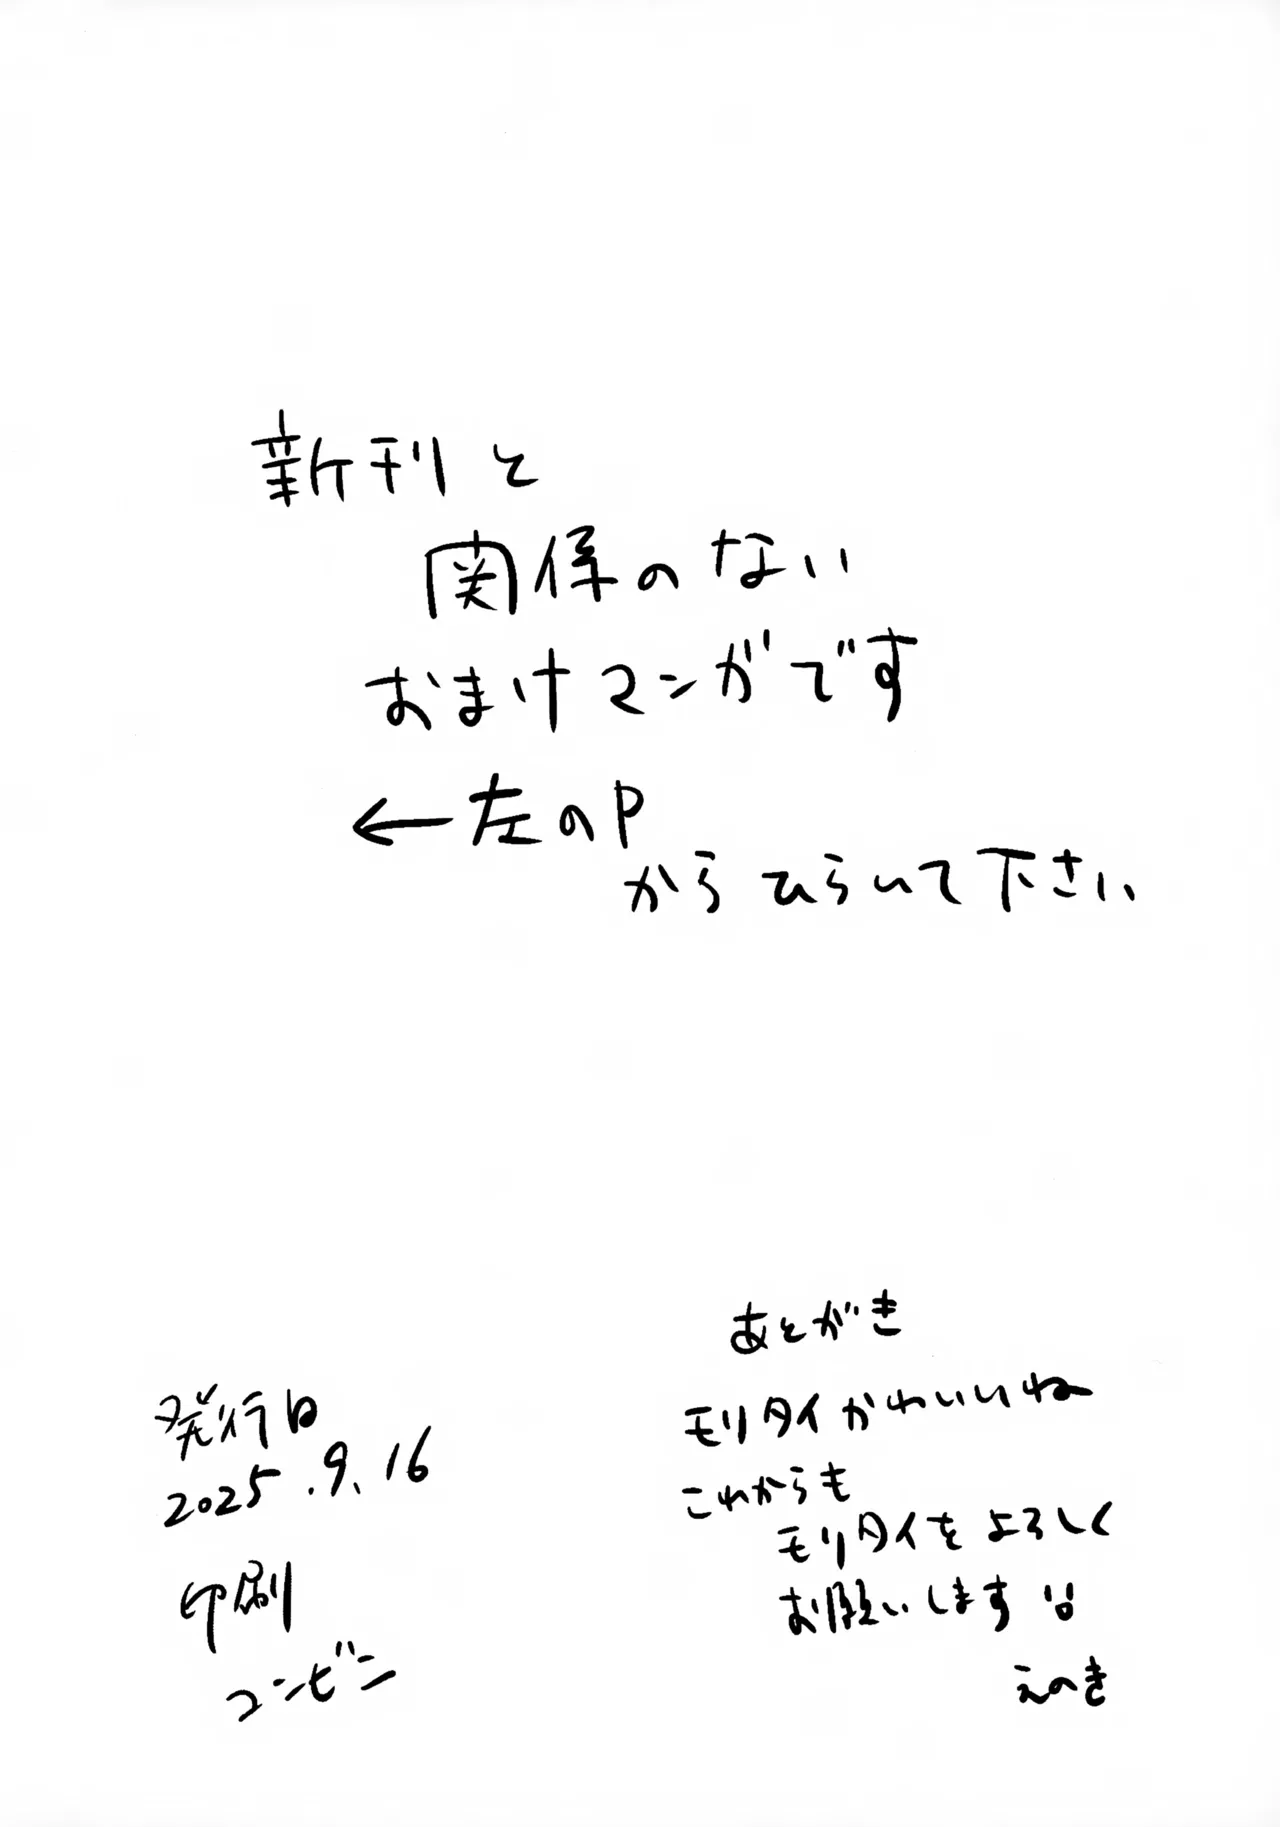 新刊と
関係のない
おまけマンガです
←左のP
からひらいて下さい
あとがき
モリタイかわいいね
これからも
モリタイをよろしく
お願いします!!
えのき
発行日
2025.9.16
印刷
コンビニ